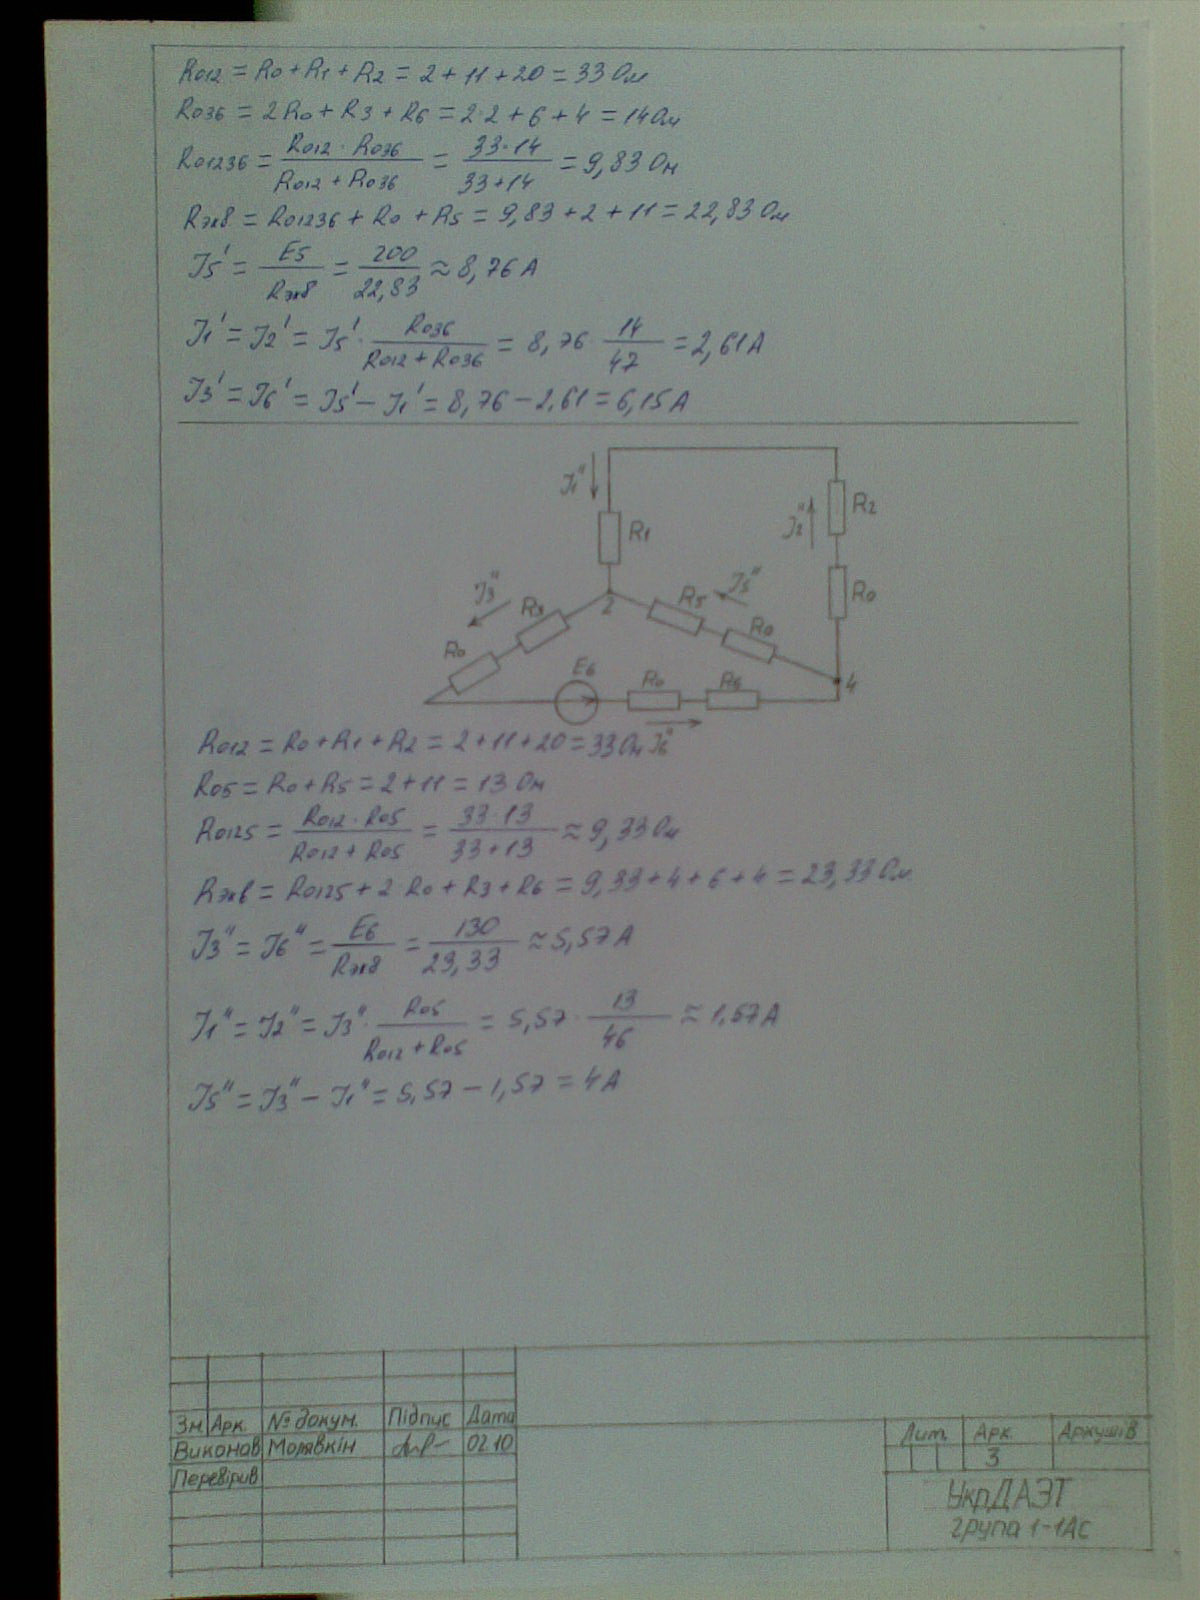 R012 = R0 + R1 + R2 = 2 + 11 + 20 = 33 Ом
R036 = 2R0 + R3 + R6 = 2·2 + 6 + 4 = 14 Ом
R01236 = (R012 · R036) / (R012 + R036) = (33·14) / (33+14) = 9,83 Ом
Rэкв = R01236 + R0 + R5 = 9,83 + 2 + 11 = 22,83 Ом
I5' = E5 / Rэкв = 200 / 22,83 ≈ 8,76 А
I1' = I2' = I5' · R036 / (R012 + R036) = 8,76 · 14 / 47 = 2,61 А
I3' = I6' = I5' − I1' = 8,76 − 2,61 = 6,15 А
I1"
R1
I2"
R2
R0
I3"
R3
R0
2
R5
I5"
R0
4
E6
R0
R6
I6"
R012 = R0 + R1 + R2 = 2 + 11 + 20 = 33 Ом
R05 = R0 + R5 = 2 + 11 = 13 Ом
R0125 = (R012 · R05) / (R012 + R05) = (33·13) / (33+13) ≈ 9,33 Ом
Rэкв = R0125 + 2 R0 + R3 + R6 = 9,33 + 4 + 6 + 4 = 23,33 Ом
I3" = I6" = E6 / Rэкв = 130 / 23,33 ≈ 5,57 А
I1" = I2" = I3" · R05 / (R012 + R05) = 5,57 · 13 / 46 ≈ 1,57 А
I5" = I3" − I1" = 5,57 − 1,57 = 4 А
Зм Арк. № докум. Підпис Дата
Виконав Морявкін 02.10
Перевірив
Лит. Арк. Аркушів
3
УкрДАЗТ
група 1-1АС